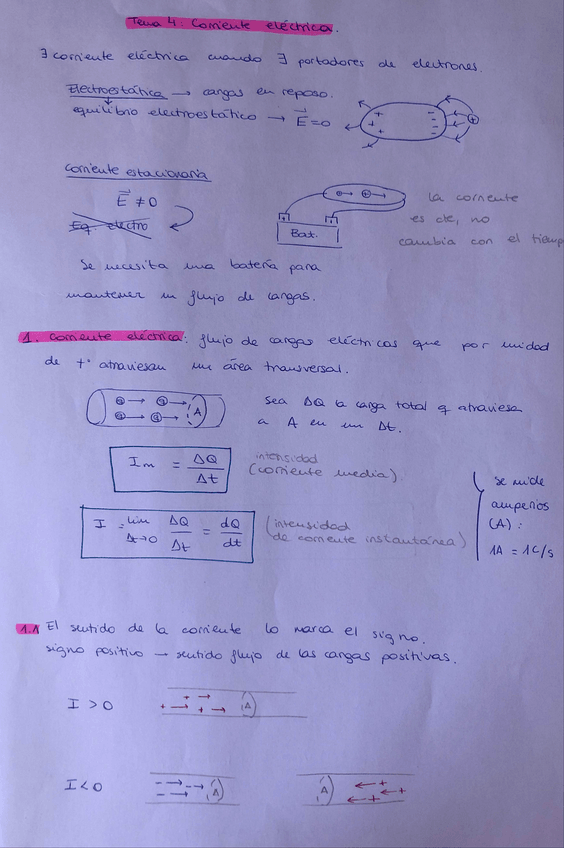 Tema 4: Corriente eléctrica.
∃ corriente eléctrica cuando ∃ portadores de electrones.
Electroestática → cargas en reposo.
equilibrio electroestático → E⃗ = 0
+ + + − − − − +
Corriente estacionaria
E⃗ ≠ 0
Eq. electro
Bat.
la corriente
es cte, no
cambia con el tiemp
Se necesita una batería para
mantener un flujo de cargas.
1. Corriente eléctrica: flujo de cargas eléctricas que por unidad
de tº atraviesan un área transversal.
A
Sea ΔQ la carga total q atraviesa
a A en un Δt.
Im = ΔQ/Δt
intensidad
(corriente media).
I = lim Δt→0 ΔQ/Δt = dQ/dt
(intensidad
de corriente instantánea)
se mide
amperios
(A):
1A = 1C/s
1.1 El sentido de la corriente lo marca el signo.
signo positivo → sentido flujo de las cargas positivas.
I > 0
+ + + A
I < 0
− − − A
A + + +